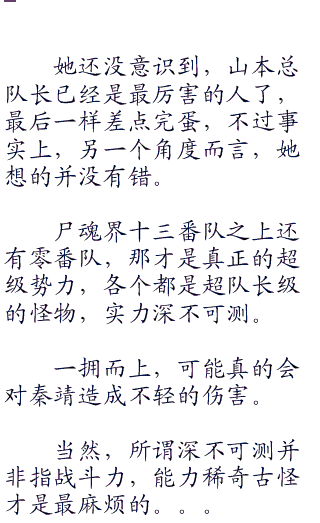 她还没意识到，山本总
队长已经是最厉害的人了，
最后一样差点完蛋，不过事
实上，另一个角度而言，她
想的并没有错。
尸魂界十三番队之上还
有零番队，那才是真正的超
级势力，各个都是超队长级
的怪物，实力深不可测。
一拥而上，可能真的会
对秦靖造成不轻的伤害。
当然，所谓深不可测并
非指战斗力，能力稀奇古怪
才是最麻烦的。。。